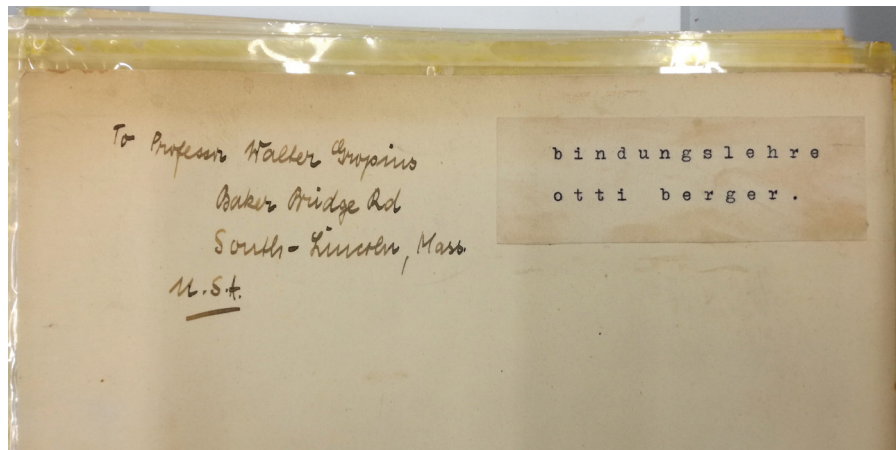 To Professor Walter Gropius
Baker Bridge Rd
South-Lincoln, Mass.
U.S.A.
bindungslehre
otti berger.